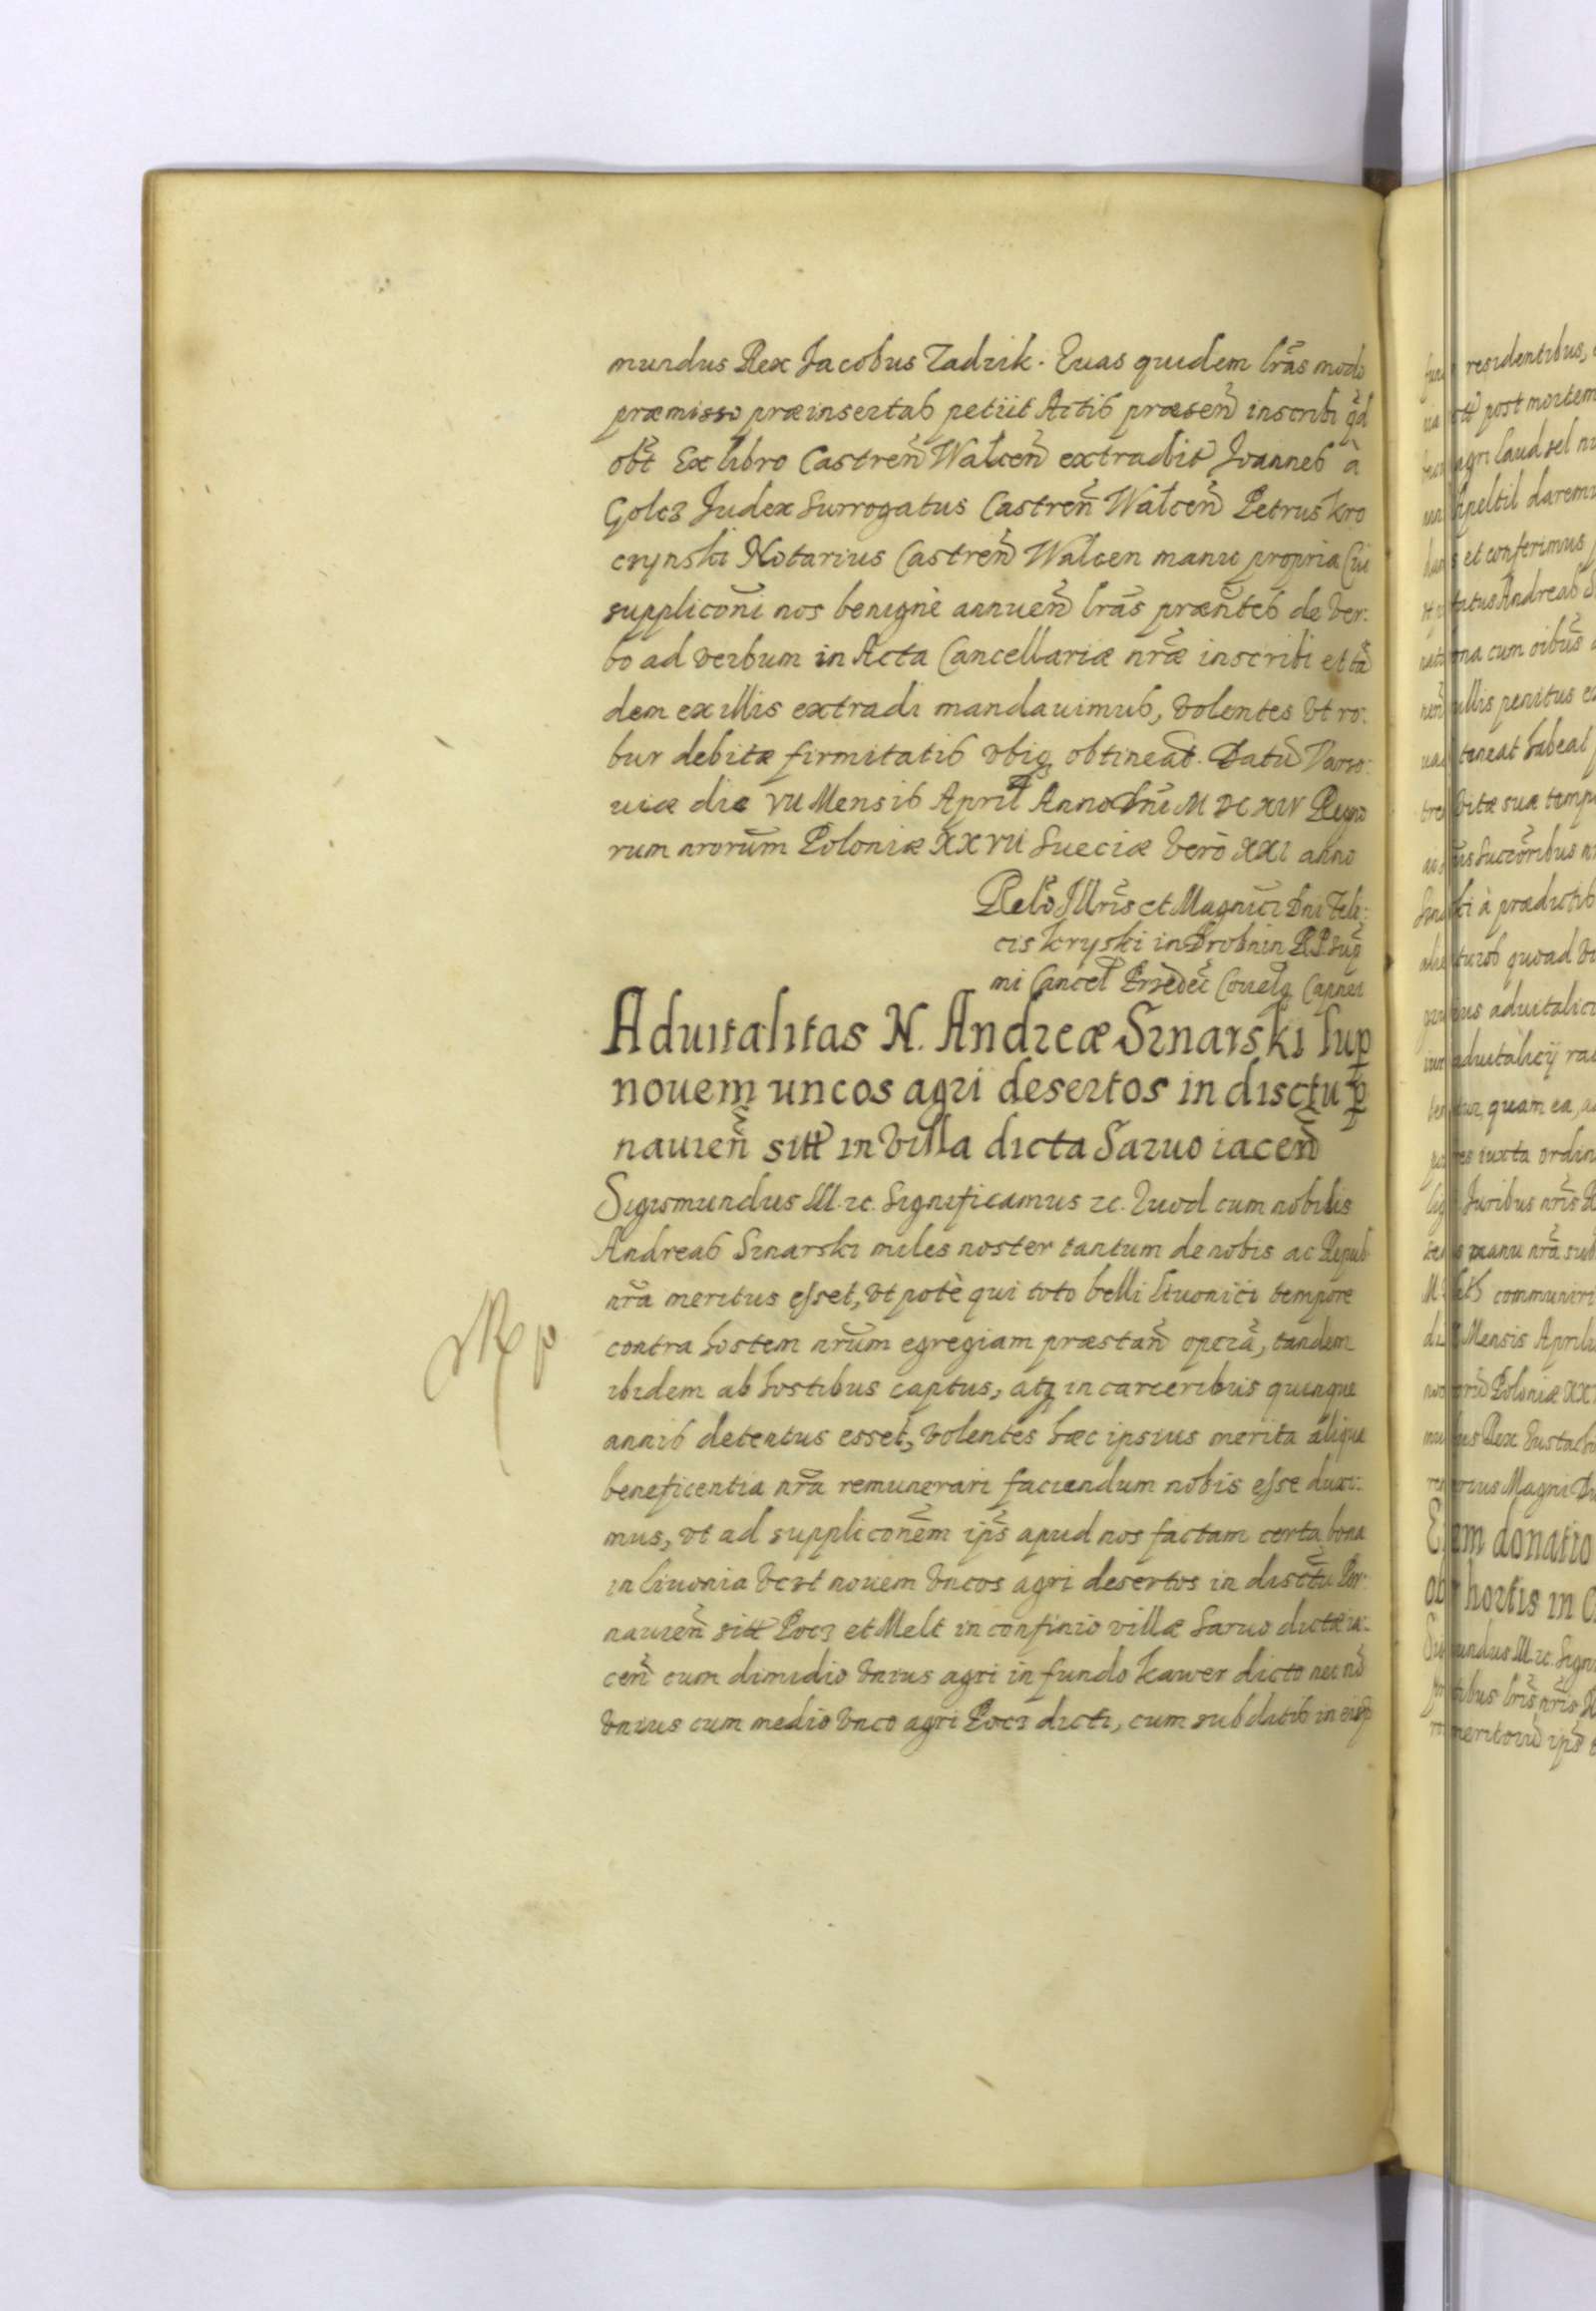 mundus Rex Jacobus Zadzik. Quas quidem lrãs modo
præmisso præinsertas petiit Actis præsen̄ inscribi qd
obt̄ Ex libro Castren̄ Walcen̄ extradit Joannes à
Golcz Judex Surrogatus Castren̄ Walcen̄ Petrus Kro
crynski Notarius Castren̄ Walcen manu propria Cui
supplicon̄i nos benignè annuen̄ lrãs præn̄tes de ver:
bo ad verbum in Acta Cancellariæ nrã̃e inscribi et tã
dem ex illis extradi mandauimus, volentes vt ro:
bur debitæ firmitatis vbiq obtineat. Datū Varso:
uiæ die VII Mensis April Anno Dn̄i M DC XIV Regno
rum nrorum̄ Poloniæ XXVII Sueciæ verò XXI anno
Relō Illris̄ et Magnici Dni Feli:
cis Kryski in Drobnin RP Sup̄
mi Cancel
Aduitalitas N. Andreæ Sznarski sup
nouem uncos agri desertos in disctu p
nauien̄ sitt in villa dicta Saruo iacen̄
Sigismundus III. zc. Significamus zc. Quod cum nobilis
Andreas Sznarski miles noster tantum de nobis ac Repub
nrã meritus esset, vt potè qui toto belli Liuonici tempore
contra hostem nrum̄ egregiam præstan̄ operã, tandem
ibidem ab hostibus captus, atq in carceribus quinque
annis detentus esset, volentes hæc ipsius merita aliqua
beneficentia nrã remunerari faciendum nobis esse duxi:
mus, vt ad supplicon̄em ips̄ apud nos factam certa bona
in Liuonia vczt nouem vncos agri desertos in disctū Per:
nauien̄ sitt Pocz et Melt in confinio villæ Saruo dictæ ia:
cen̄ cum dimidio vnius agri in fundo Kawer dicto nec nō
vnius cum medio vnco agri Pocz dicti, cum subditis in eisd